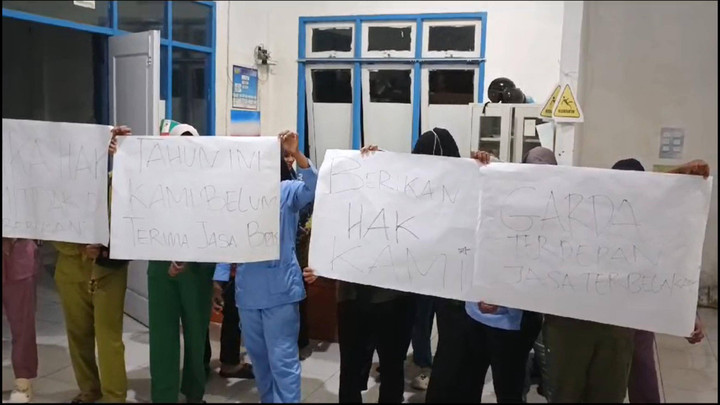 HAK
TAHUN INI
KAMI BELUM
TERIMA JASA
BERIKAN
HAK
KAMI
GARDA
TERDEPAN
JASA TERBELAKANG